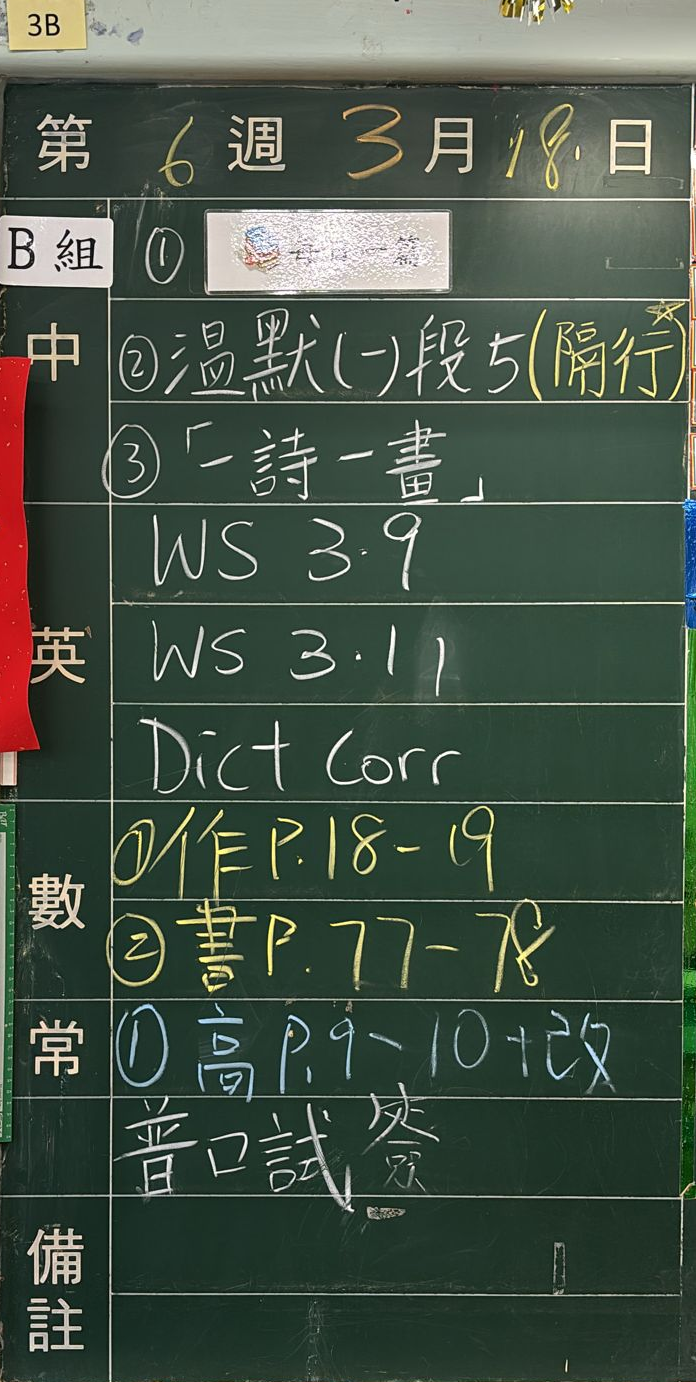 3B
第 6 週 3 月 18 日
B 組 ① 每日一篇
中 ② 温默(一)段5(隔行)
③「一詩一畫」
WS 3.9
英 WS 3.11
Dict Corr
① 作 P.18-19
數 ② 書 P.77-78
常 ① 高 P.9-10+改
普口試簽
備
註